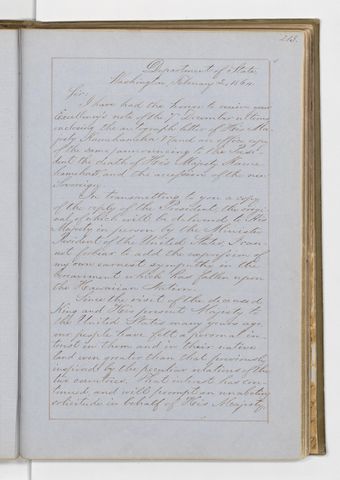 213.
Department of State,
Washington, February 2, 1864.
Sir:
I have had the honor to receive your
Excellency's note of the 7th December ultimo,
enclosing the autograph letter of His Ma-
jesty Kamehameha V and an office copy
of the same, announcing to the Presi-
dent the death of His Majesty Kame-
hameha IV and the accession of the new
Sovereign.
In transmitting to you a copy
of the reply of the President, the origi-
nal of which will be delivered to His
Majesty in person by the Minister
Resident of the United States, I can-
not forbear to add the expression of
my own earnest sympathy in the
bereavement which has fallen upon
the Hawaiian Nation.
Since the visit of the deceased
King and His present Majesty to
the United States many years ago,
our people have felt a personal in-
terest in them and in their native
land even greater than that previously
inspired by the peculiar relations of the
two countries. That interest has con-
tinued, and will prompt an unabating
solicitude in behalf of His Majesty,